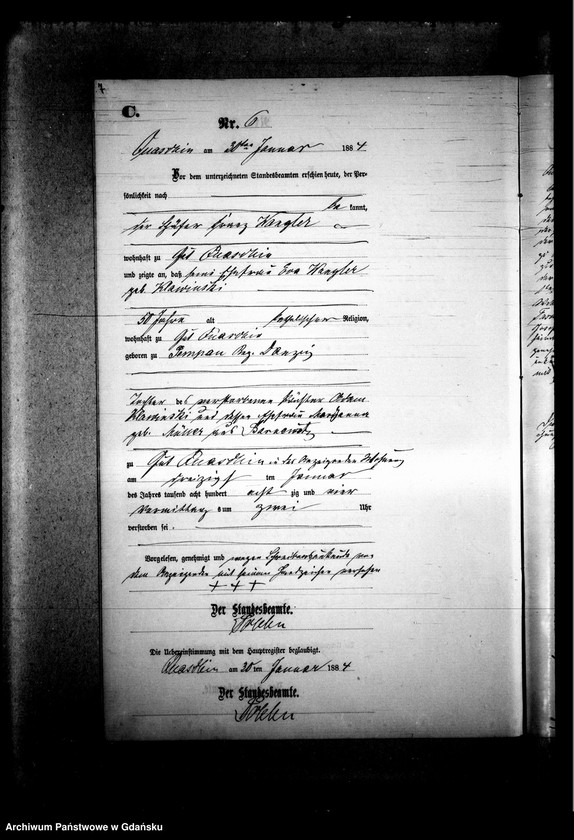 C.
Nr. 6
Quaschin am 30ten Januar 1884.
Vor dem unterzeichneten Standesbeamten erschien heute, der Per-
sönlichkeit nach
be kannt,
der Franz Wengler
wohnhaft zu Gut Quaschin
und zeigte an, daß seine Ehefrau Eva Wengler
geb. Klawinski
50 Jahre alt katholischer Religion,
wohnhaft zu Gut Quaschin
geboren zu Pempau Bez. Danzig
Tochter des verstorbenen Adam
Klawinski und dessen Ehefrau Marianna
geb. Müller aus
zu Gut Quaschin in des Anzeigenden Wohnung
am dreizigsten Januar
des Jahres tausend acht hundert acht zig und vier
Vormittags um zwei Uhr
verstorben sei.
Vorgelesen, genehmigt und wegen Schreibensunkunde von
dem Anzeigenden mit seinem Handzeichen versehen
+ + +
Der Standesbeamte.
Die Uebereinstimmung mit dem Hauptregister beglaubigt.
Quaschin am 30ten Januar 1884
Der Standesbeamte.
Archiwum Państwowe w Gdańsku